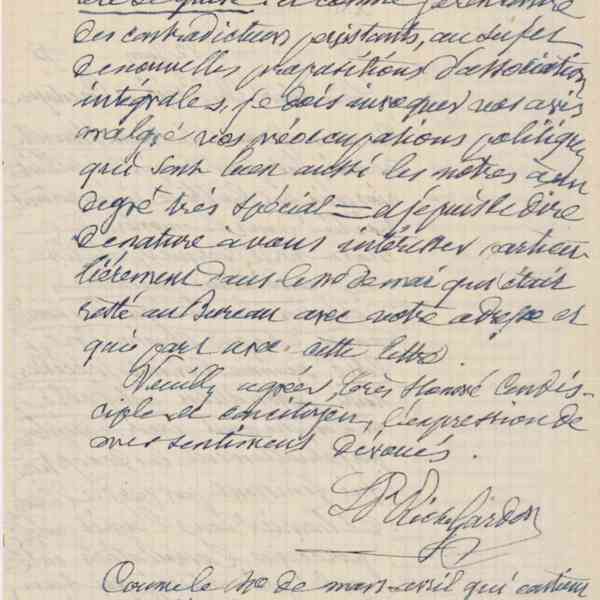 et comme je rencontre
des contradicteurs persistants, au sujet
de nouvelles propositions d'association
intégrales, je dois invoquer vos avis
malgré vos préoccupations politiques
qui sont bien aussi les nôtres à un
degré très spécial = et je puis le dire
de nature à vous intéresser particu-
lièrement dans le No de mai qui était
resté au Bureau avec votre adresse et
qui part avec cette lettre.
Veuillez agréer, très honoré Condis-
ciple et concitoyen, l'expression de
mes sentiments dévoués.
Comme le No de mars-avril qui contient